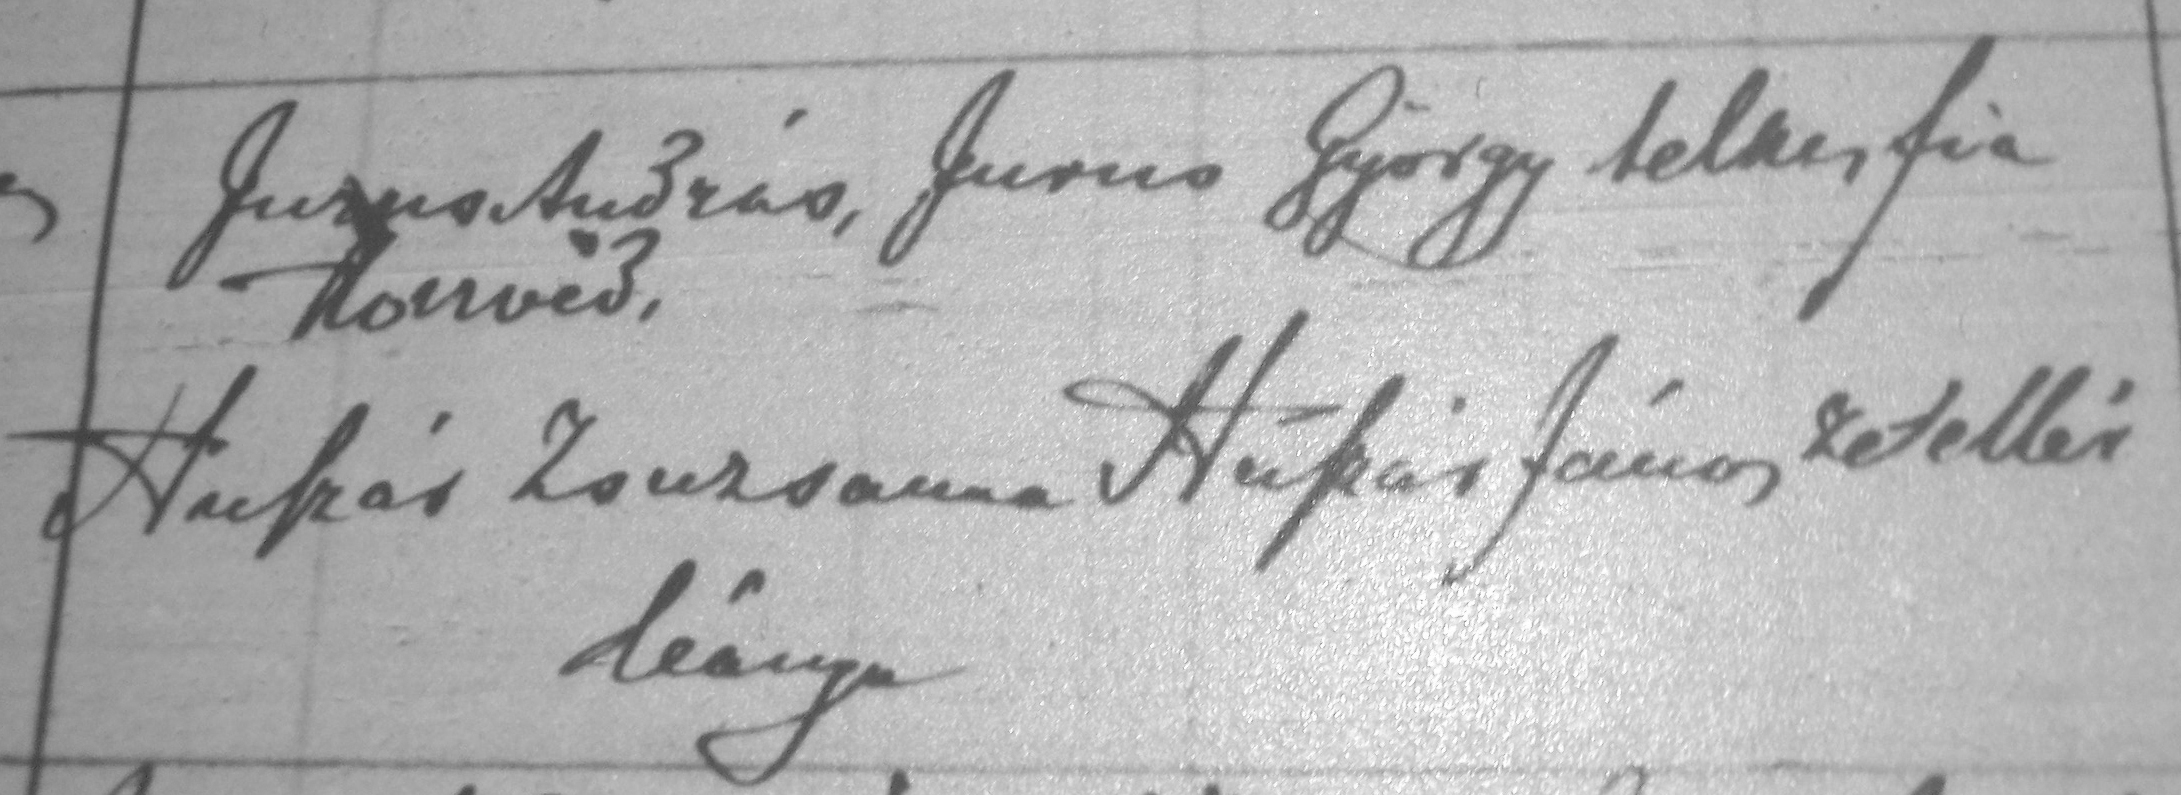 Jurus András, Jurus György telkes fia
Honvéd.
Hupár Zsuzsanna Hupár János zsellér
leánya